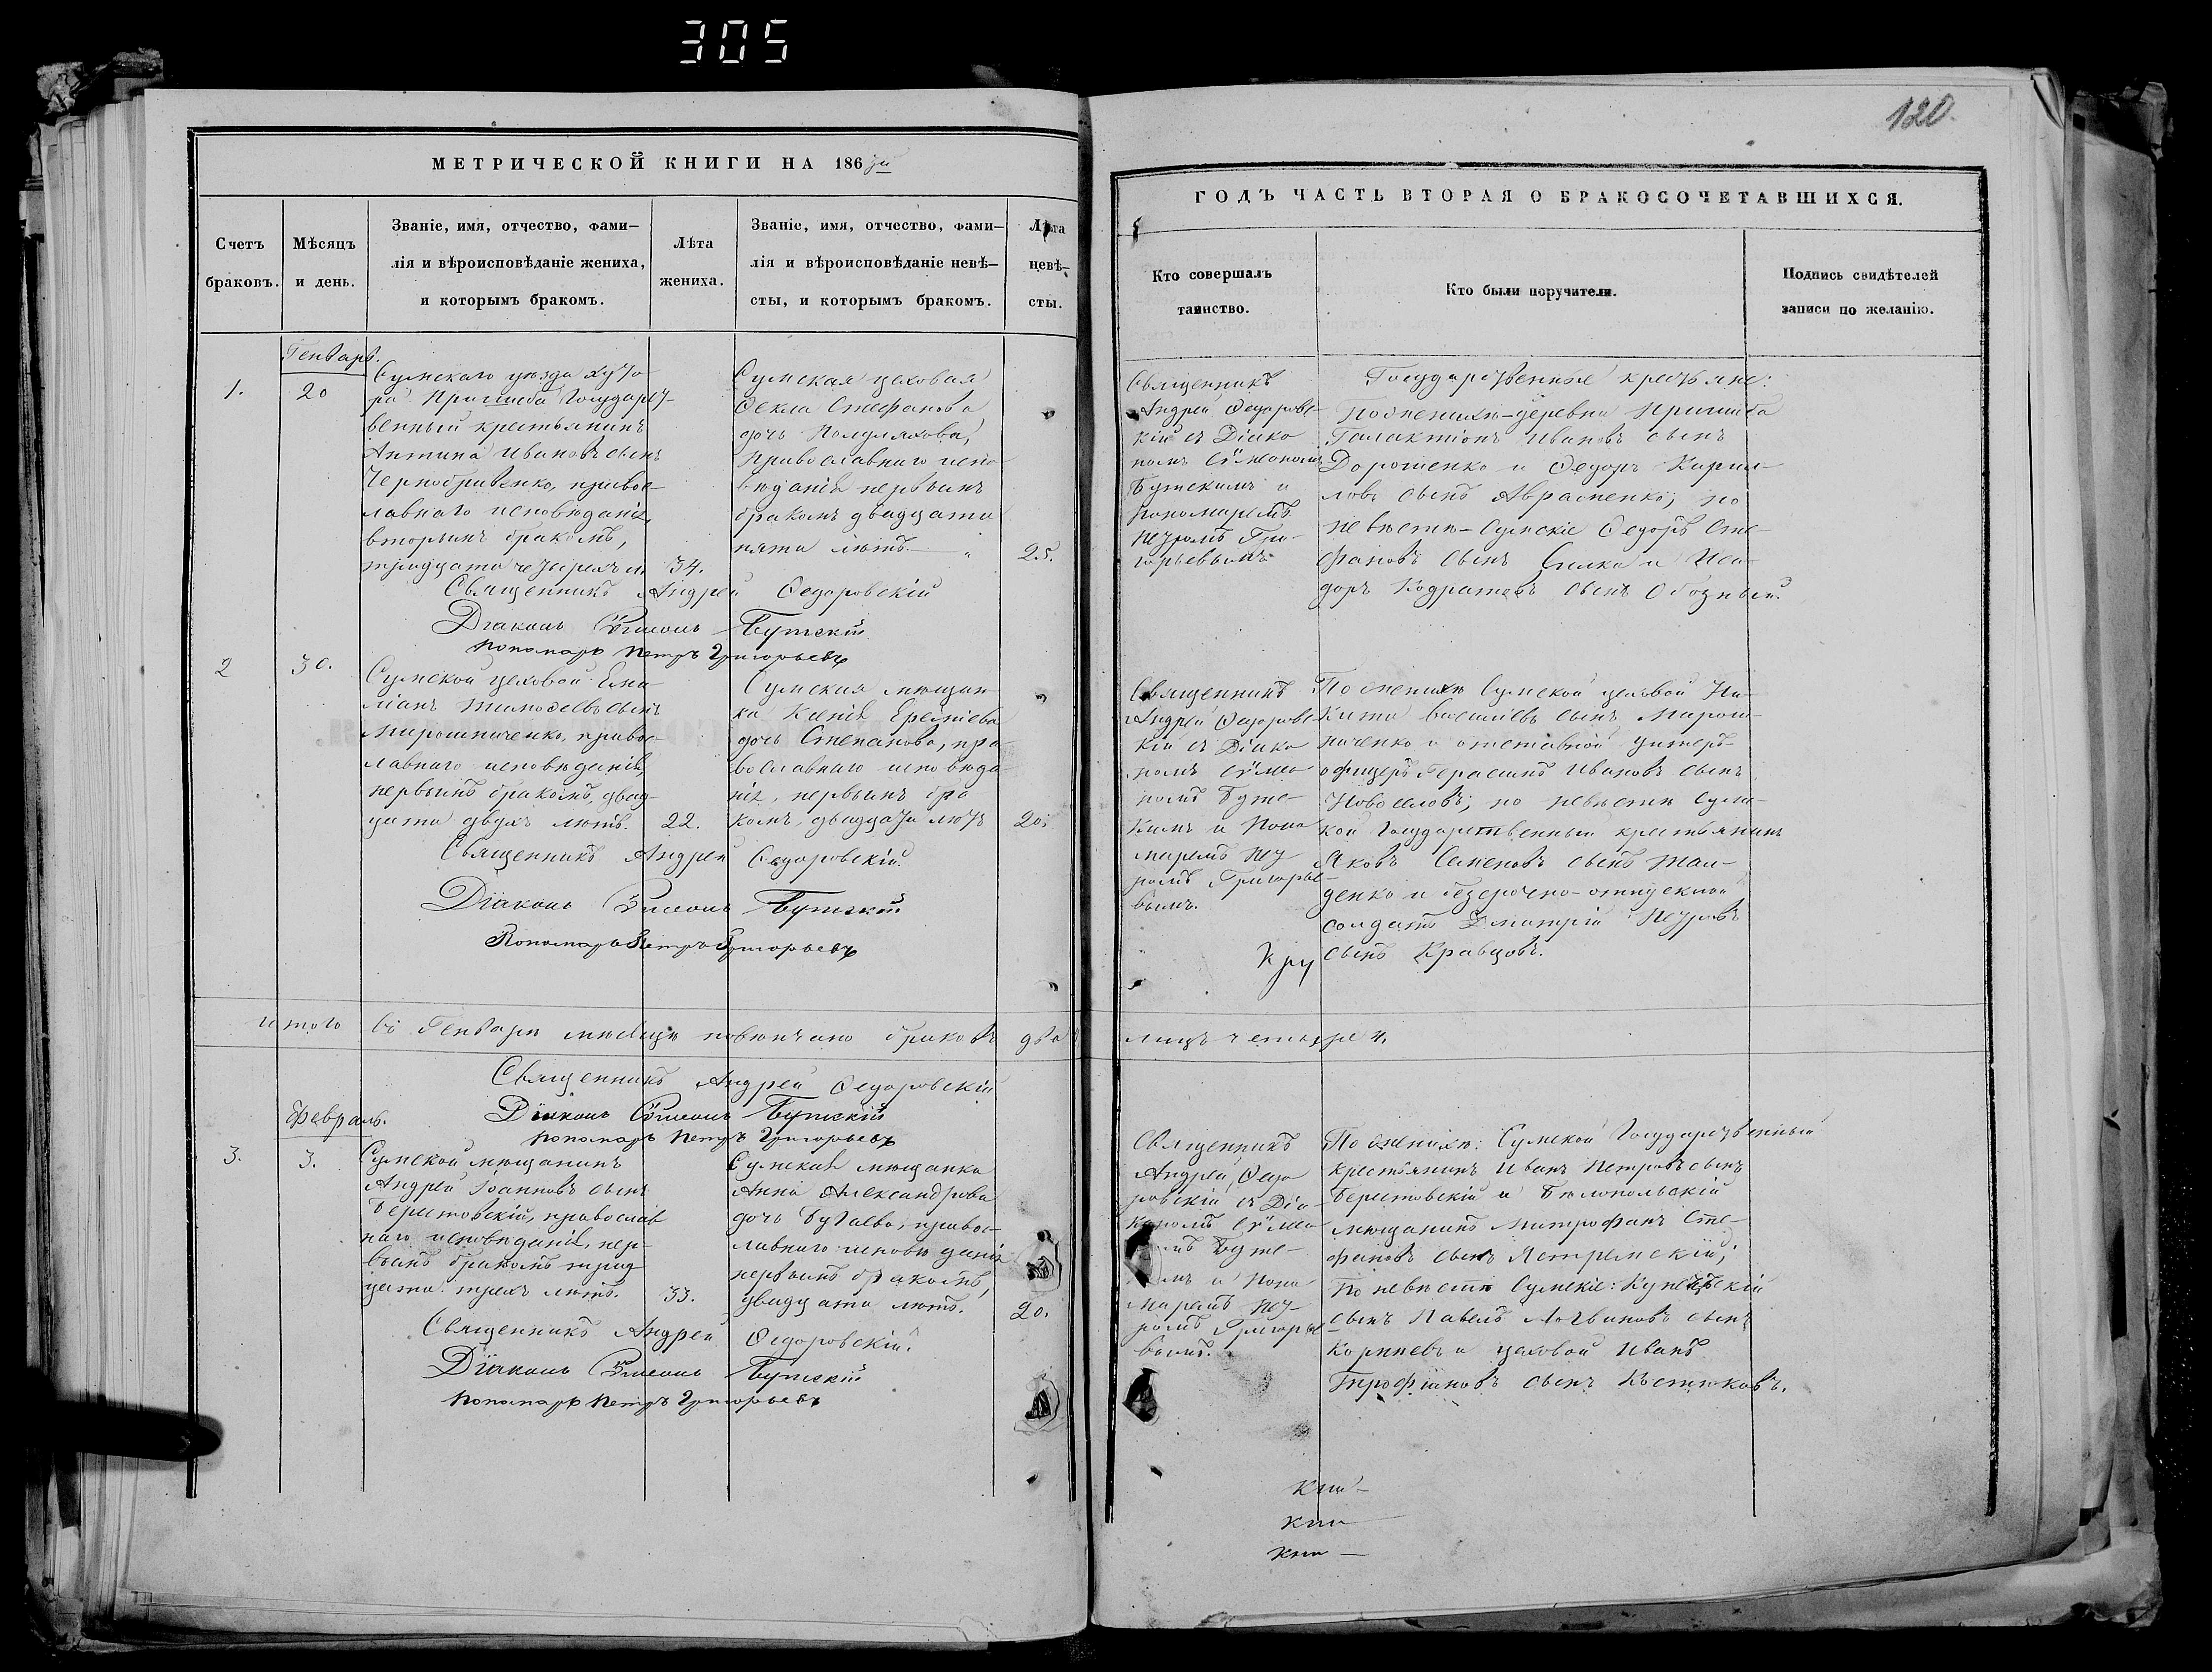 305
120.
МЕТРИЧЕСКОЙ КНИГИ НА 186
ГОДЪ ЧАСТЬ ВТОРАЯ О БРАКОСОЧЕТАВШИХСЯ.
Счетъ
браковъ.
Мѣсяцъ
и день.
Званіе, имя, отчество, фами-
лія и вѣроисповѣданіе жениха,
и которымъ бракомъ.
Лѣта
жениха.
Званіе, имя, отчество, фами-
лія и вѣроисповѣданіе невѣ-
сты, и которымъ бракомъ.
Лѣта
невѣ-
сты.
Кто совершалъ
таинство.
Кто были поручители.
Подпись свидѣтелей
записи по желанію.
Генварь.
1.
20
Сумскаго уѣзда хуто
ра Пришиба Государст-
венный крестьянинъ
Антипа Ивановъ сынъ
Чернобривенко, правос-
лавнаго исповѣданія,
вторымъ бракомъ,
тридцати четырехъ л.
34.
Сумская цеховая
Ѳекла Стефанова
дочь Полуляхова,
православнаго испо
вѣданія первымъ
бракомъ двадцати
пяти лѣтъ
25.
Священникъ
Андрей Ѳедоровс-
кій съ Діако
номъ Сѵмеономъ
Бутскимъ и
пономаремъ
Петромъ Гри-
горьевымъ
Государственные крестьяне:
по женихѣ - деревни Пришиба
Галактіонъ Ивановъ сынъ
Дорошенко и Ѳедоръ Кирил-
ловъ сынъ Авраменко; по
невѣстѣ - Сумскіе Ѳедоръ Сте-
фановъ сынъ и Иси-
доръ Кодратовъ сынъ Обозный.
Священникъ Андрей Ѳедоровскій
Діаконъ Сѵмеонъ Бутскій
Пономарь Петръ Григорьевъ
2
30.
Сумской цеховой Еми
ліанъ Тимоѳеевъ сынъ
Мирошниченко, правос-
лавнаго исповѣданія,
первымъ бракомъ, двад-
цати двухъ лѣтъ.
22.
Сумская мѣщан-
ка Ксенія
дочь Степанова, пра-
вославнаго исповѣда
нія, первымъ бра
комъ, двадцати лѣтъ
20.
Священникъ
Андрей Ѳедоровс-
кій съ Діако
номъ Сѵмео
номъ Бутс-
кимъ и Поно
маремъ Пет
ромъ Григорье-
вымъ.
По женихѣ Сумской цеховой Ни-
кита Васильевъ сынъ Мирош-
ниченко и отставной унтеръ-
офицеръ Герасимъ Ивановъ сынъ
Новоселовъ; по невѣстѣ Сумс-
кой Государственный крестьянинъ
Яковъ Семеновъ сынъ
денко и безсрочно-отпускной
солдатъ Дмитрій Петровъ
сынъ Кравцовъ.
Священникъ Андрей Ѳедоровскій.
Діаконъ Сѵмеонъ Бутскій
Пономарь Петръ Григорьевъ
Итого въ Генварѣ мѣсяцѣ повѣнчано браковъ два
лицъ четыре 4.
Священникъ Андрей Ѳедоровскій
Діаконъ Сѵмеонъ Бутскій
Пономарь Петръ Григорьевъ
Февраль.
3.
3.
Сумской мѣщанинъ
Андрей Іоанновъ сынъ
Берестовскій, православ
наго исповѣданія, пер-
вымъ бракомъ трид
цати трехъ лѣтъ.
33.
Сумская мѣщанка
Анна Александрова
дочь Бугаева, правос-
лавнаго исповѣданія
первымъ бракомъ,
двадцати лѣтъ.
20.
Священникъ
Андрей Ѳедо
ровскій съ Діа-
кономъ Сѵмео
номъ Бутс-
кимъ и Поно
маремъ Пет-
ромъ Григорье
вымъ.
По женихѣ: Сумской Государственный
крестьянинъ Иванъ Петровъ сынъ
Берестовскій и Бѣлопольскій
мѣщанинъ Митрофанъ Сте-
фановъ сынъ Ястремскій;
По невѣстѣ Сумскіе: Купеческій
сынъ Павелъ Логвиновъ сынъ
Корниевъ и цеховой Иванъ
Трофимовъ сынъ Костюковъ.
Священникъ Андрей Ѳедоровскій.
Діаконъ Сѵмеонъ Бутскій
Пономарь Петръ Григорьевъ